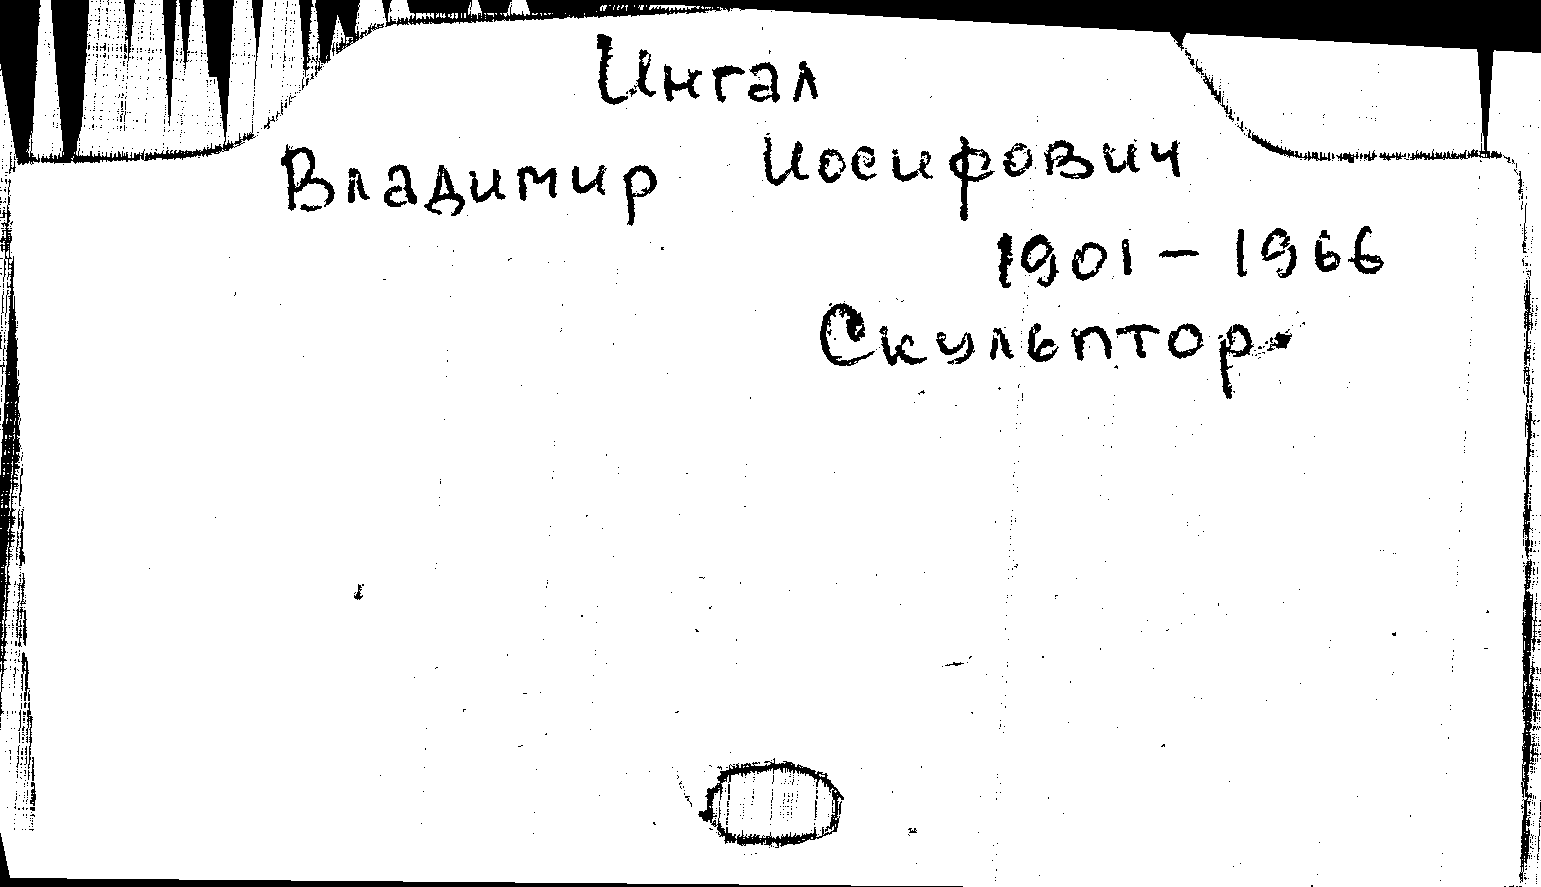 Ингал
Владимир Иосифович
1901 – 1966
Скульптор.